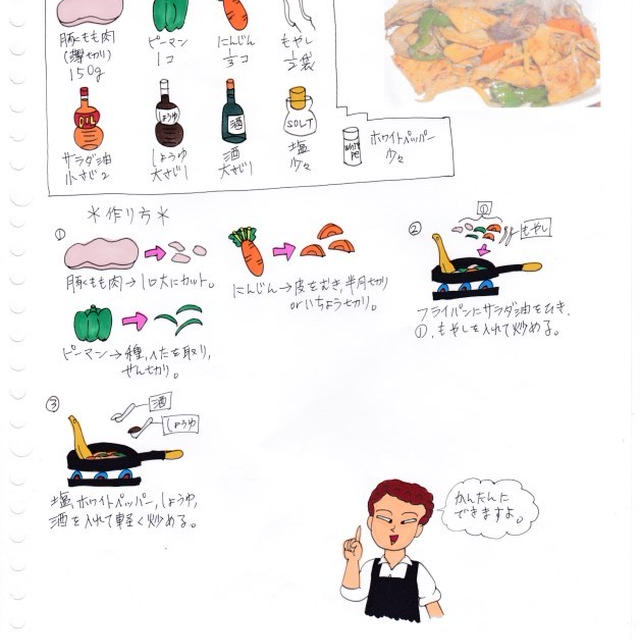 豚もも肉
(薄切り)
150g
ピーマン
1コ
にんじん
1/3コ
もやし
1/2袋
OIL
サラダ油
小さじ2
しょうゆ
しょうゆ
大さじ1
酒
酒
大さじ1
SOLT
塩
少々
WHITE PE
ホワイトペッパー
少々
＊作り方＊
①
豚もも肉→1口大にカット。
にんじん→皮をむき,半月切り
orいちょう切り。
ピーマン→種,ヘタを取り,
せん切り。
②
①
もやし
フライパンにサラダ油をひき,
①,もやしを入れて炒める。
③
酒
しょうゆ
塩,ホワイトペッパー,しょうゆ,
酒を入れて軽く炒める。
かんたんに
できますよ。